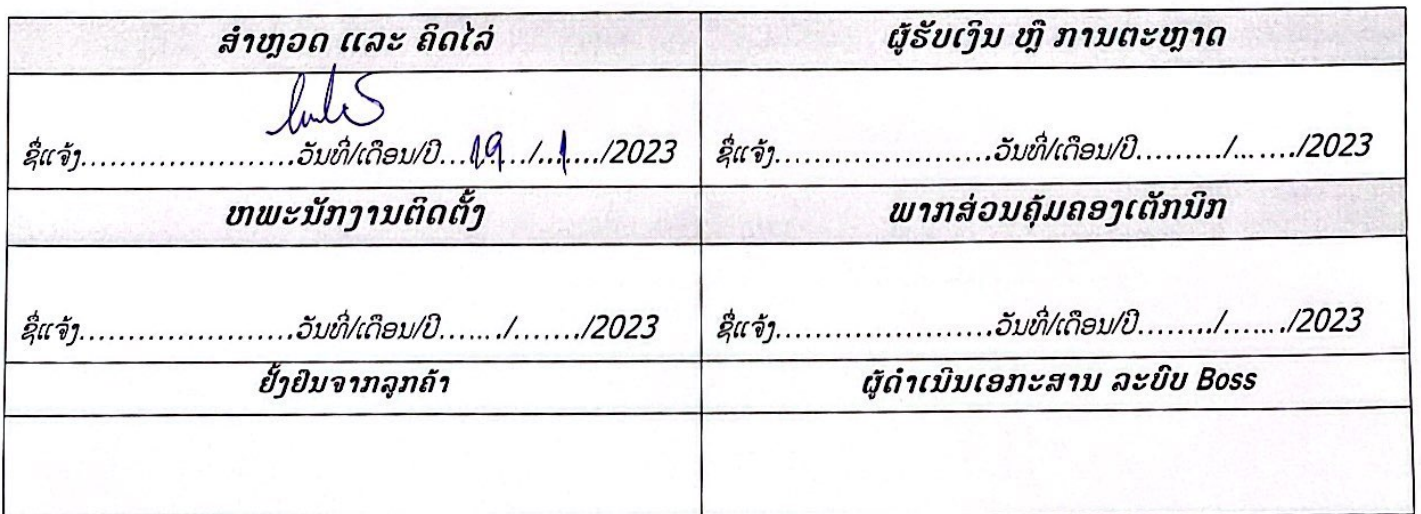 ສຳຫຼວດ ແລະ ຄິດໄລ່
ຜູ້ຮັບເງິນ ຫຼື ການຕະຫຼາດ
ຊື່ແຈ້ງ......................ວັນທີ່/ເດືອນ/ປີ...19../...1..../2023
ຊື່ແຈ້ງ......................ວັນທີ່/ເດືອນ/ປີ........./......./2023
ຫພະນັກງານຕິດຕັ້ງ
ພາກສ່ວນຄຸ້ມຄອງເຕັກນິກ
ຊື່ແຈ້ງ......................ວັນທີ່/ເດືອນ/ປີ......./......./2023
ຊື່ແຈ້ງ......................ວັນທີ່/ເດືອນ/ປີ......../......./2023
ຢັ້ງຢືນຈາກລູກຄ້າ
ຜູ້ດຳເນີນເອກະສານ ລະບົບ Boss